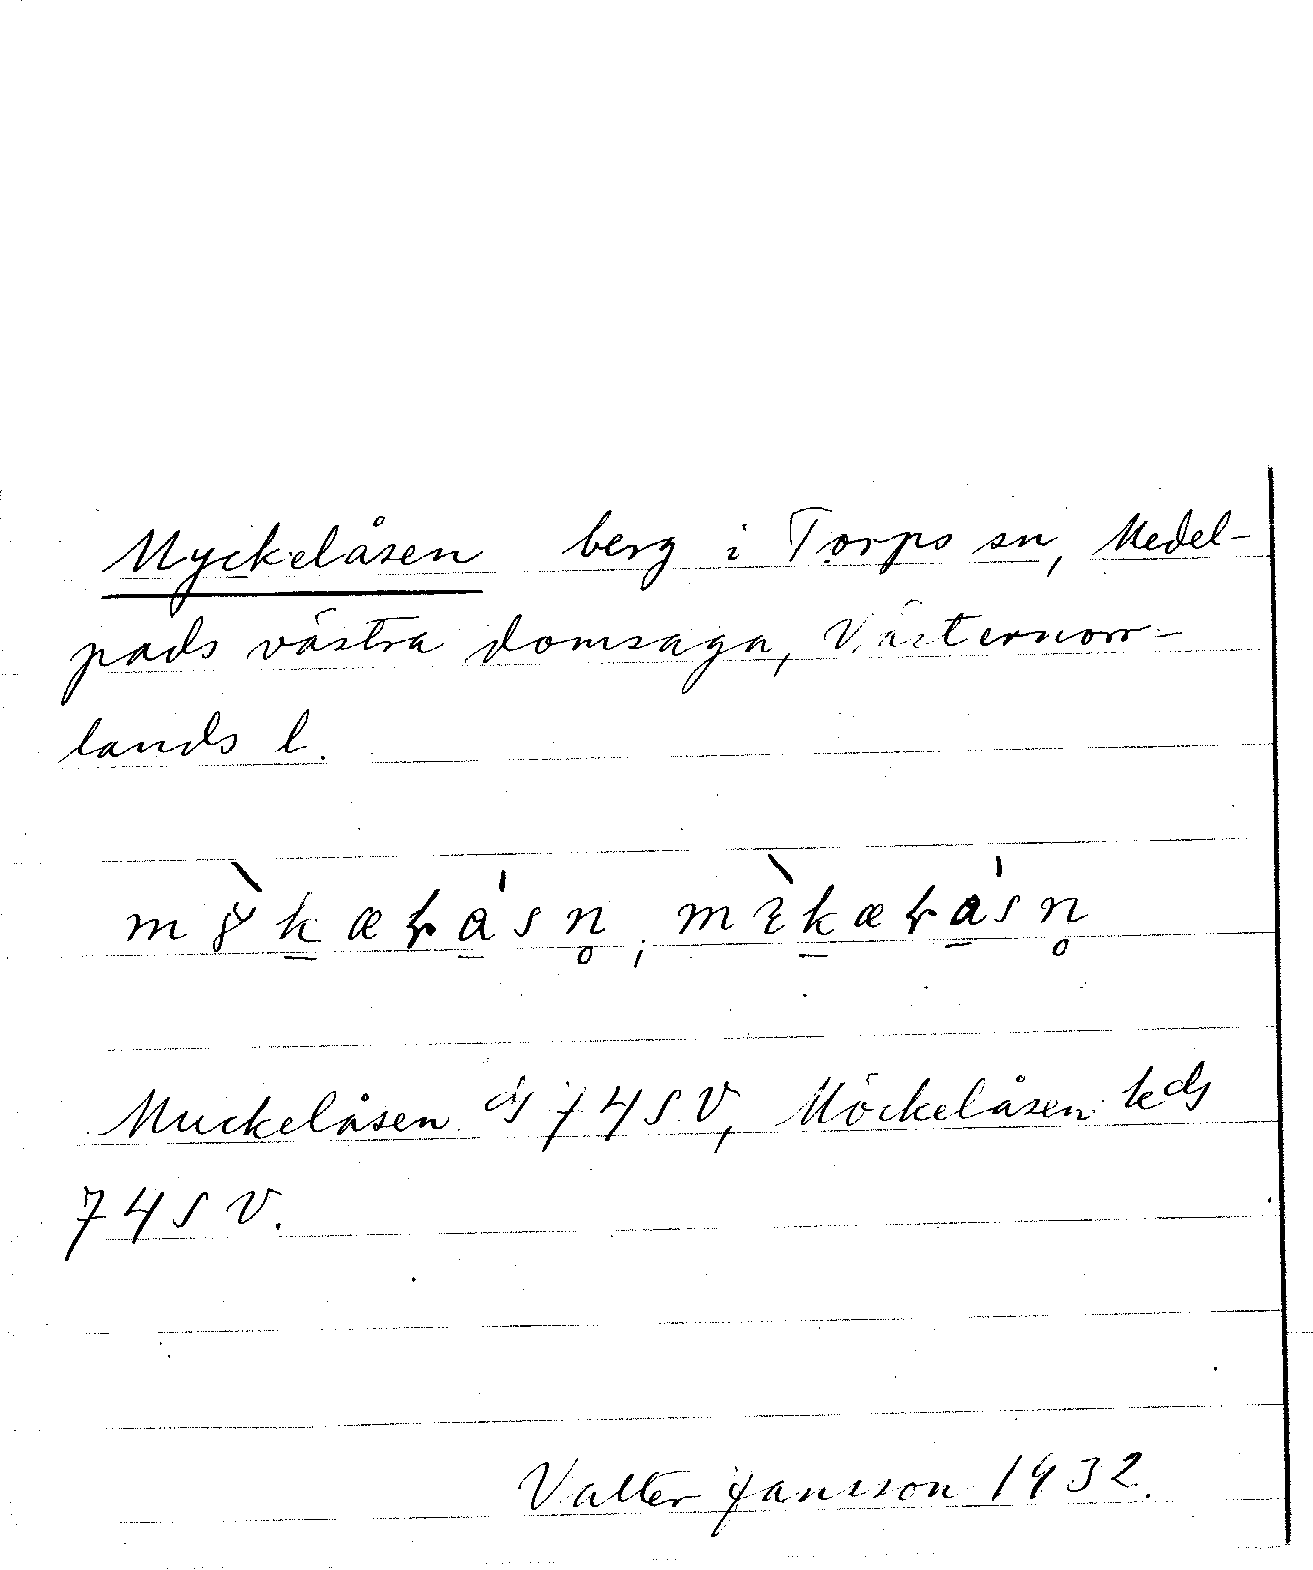 Myckelåsen berg i Torps sn, Medel-
pads västra domsaga, Västernorr-
lands l.
Muckelåsen ds 74 S V, Möckelåsen kds
74 S V.
Valter Jansson 1932.